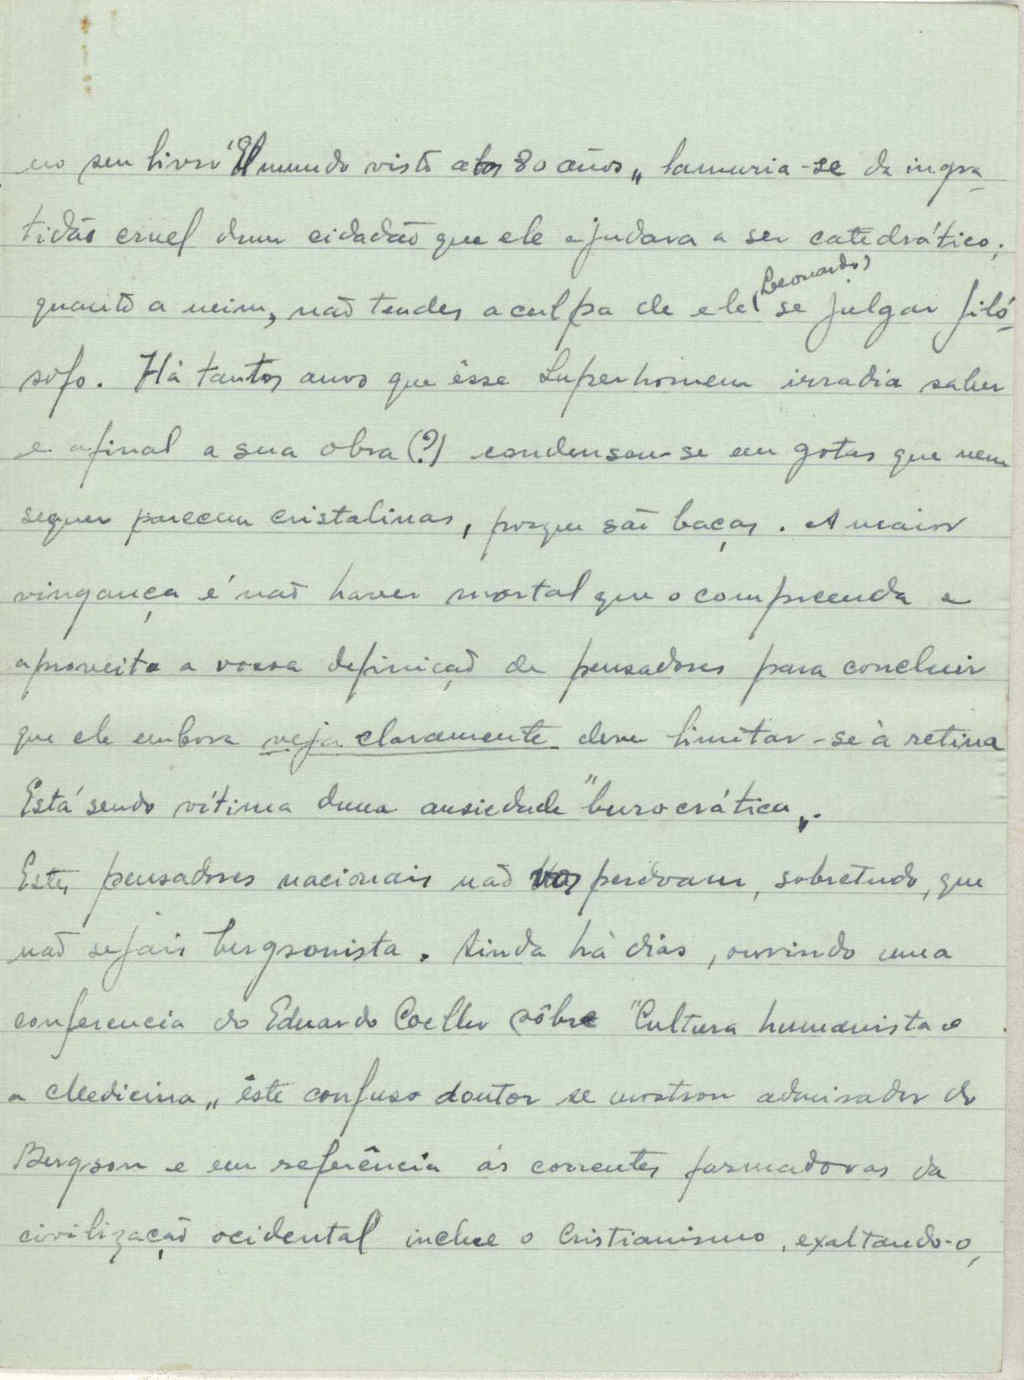 no seu livro "El mundo visto a los 80 años„ lamuria-se da ingra-
tidão cruel dum cidadão que ele ajudara a ser catedrático;
quanto a mim, não tendes a culpa de ele (Leonardo) se julgar filó-
sofo. Há tantos anos que êsse Superhomem irradia saber
e afinal a sua obra (?) condensou-se em gotas que nem
sequer parecem cristalinas, porque são baças. A maior
vingança é não haver mortal que o compreenda e
aproveito a vossa definição de pensadores para concluir
que ele embora veja claramente deve limitar-se à retina
Está sendo vítima duma ansiedade "burocrática„.
Estes pensadores nacionais não vos perdoam, sobretudo, que
não sejais bergsonista. Ainda há dias, ouvindo uma
conferencia do Eduardo Coelho sôbre "Cultura humanista e
a Medicina„ êste confuso doutor se mostrou admirador de
Bergson e em referência ás correntes formadoras da
civilização ocidental inclue o Cristianismo, exaltando-o,